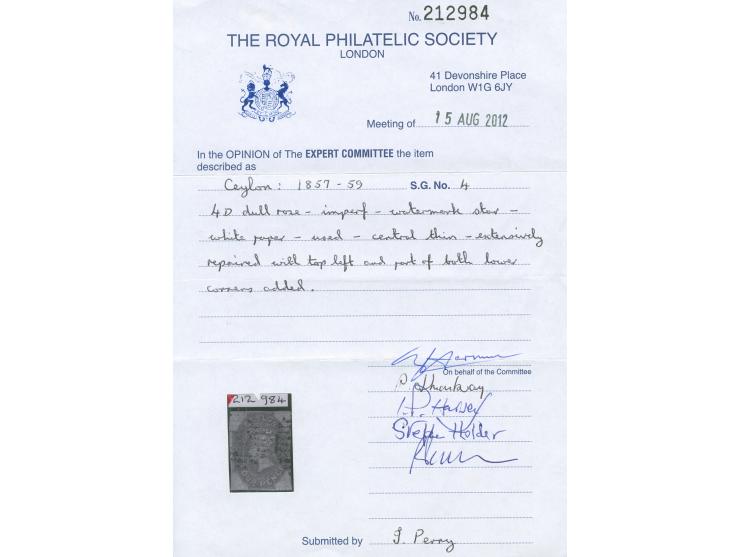 No. 212984
THE ROYAL PHILATELIC SOCIETY
LONDON
41 Devonshire Place
London W1G 6JY
Meeting of 15 AUG 2012
In the OPINION of The EXPERT COMMITTEE the item
described as
Ceylon: 1857 - 59 S.G. No. 4
4D dull rose - imperf - watermark star -
white paper - used - central thin - extensively
repaired with top left and part of both lower
corners added.
On behalf of the Committee
212 984
Holder
Submitted by J. Perry